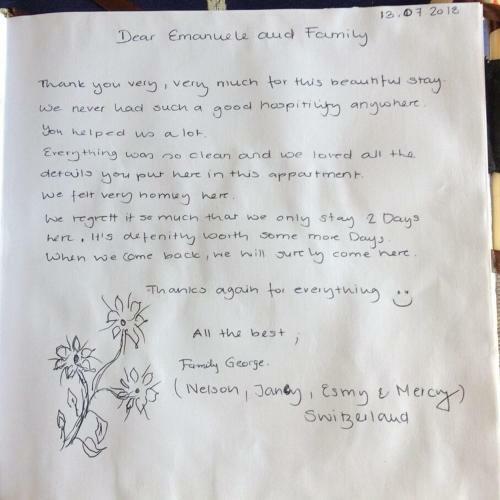 13.07 2018
Dear Emanuele and Family
Thank you very, very much for this beautiful stay.
We never had such a good hospitility anywhere.
You helped us a lot.
Everything was so clean and we loved all the
details you put here in this appartment.
We felt very homey here.
We regrett it so much that we only stay 2 Days
here, It's defenitly worth some more Days.
When we come back, we will surely come here.
Thanks again for everything
All the best,
Family George.
(Nelson, Jancy, Esmy & Mercy)
Switzerland